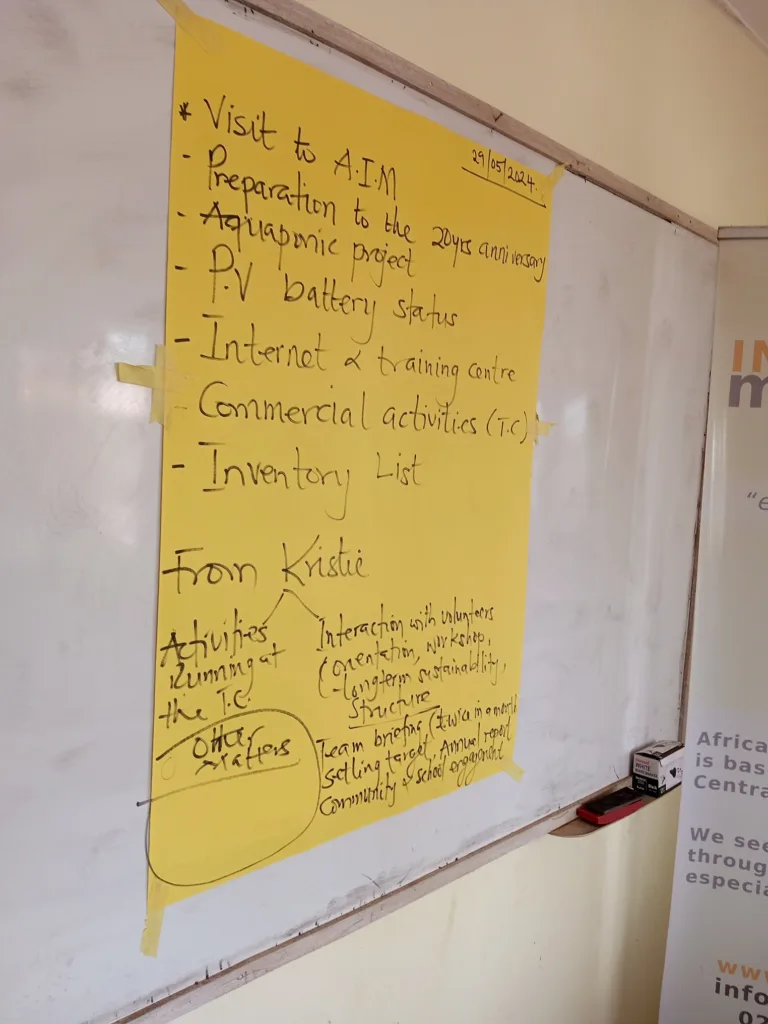 29/05/2024.
* Visit to A.I.M
- Preparation to the 20yrs anniversary
- Aquaponic project
- P.V battery status
- Internet & training centre
- Commercial activities (T.C)
- Inventory List
From Kristie
Activities
Running at
the T.C.
Other
Matters
Interaction with volunteers
(orientation, workshop,
-longterm sustainability,
Structure
Team briefing (twice in a month
setting target, Annual report
community & school engagement
IN
m
"e
Africa
is bas
Centra
We see
throug
especia
www
info
02